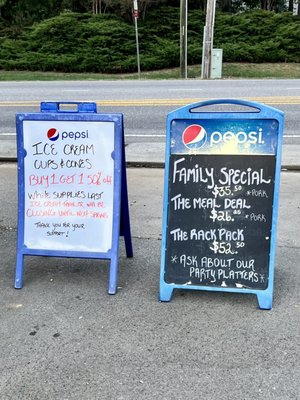 pepsi
ICE CREAM
CUPS & CONES
BUY 1 GET 1 50% off
WHILE SUPPLIES LAST
ICE CREAM TRAILER WILL BE
CLOSING UNTIL NEXT SPRING
THANK YOU FOR YOUR
SUPPORT!
pepsi
FAMILY SPECIAL
$35.50 *PORK
THE MEAL DEAL
$26. *PORK
THE RACK PACK
$52.50
*ASK ABOUT OUR
PARTY PLATTERS*